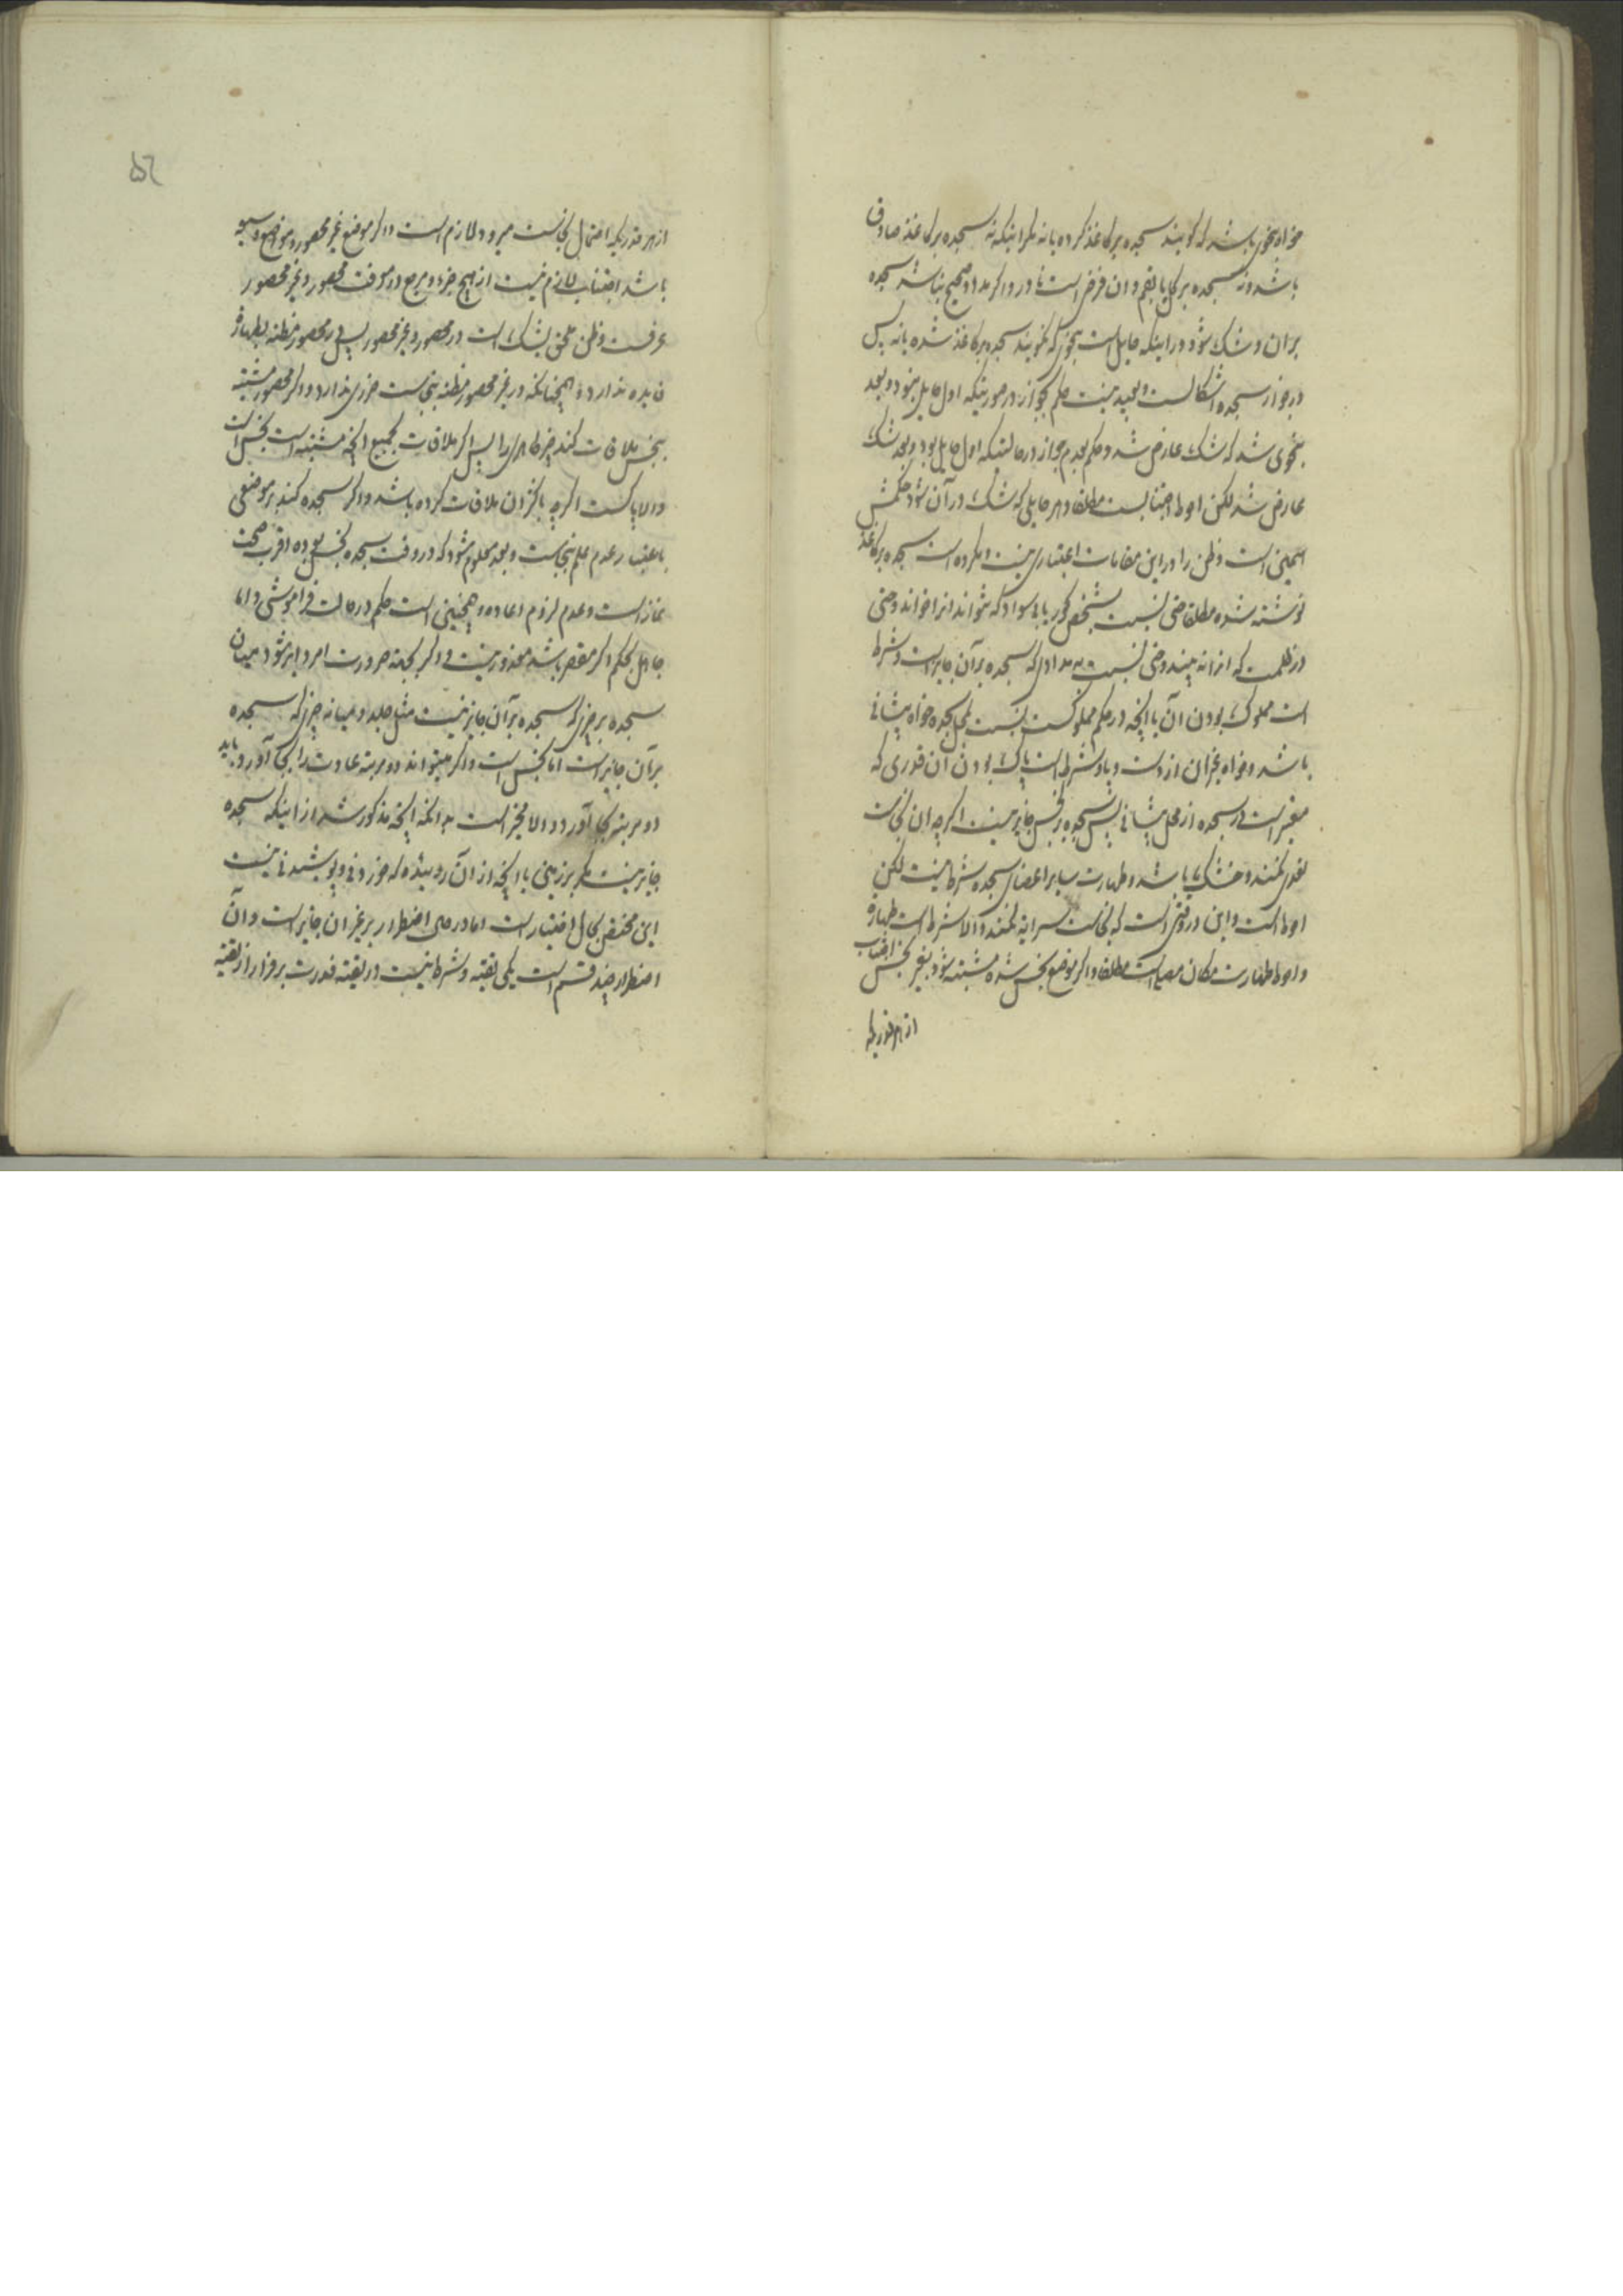 خواه بنحوی باشد که گویند سجده بر کاغذ کرده یا نه مگر اینکه نه سجده بر کاغذ صادق
باشد و نه سجده بر گیاه و ان فرض است نادر و اگر مداد صحیح نباشد سجده
بر ان و شک شود در اینکه حایل است بنحوی که نگویند سجده بر کاغذ شده یا نه پس
در جواز سجده اشکالست و بعید نیست حکم بجواز در صورتیکه اول حایل نبود و بعد
بنحوی شد که شک عارض شد و حکم بعدم جواز در حالتیکه اول حایل بود و بعد شک
عارض شد لکن احوط اجتنابست مطلقا و هر حایلی که شک در آن شود حکمش
همین است و ظن را در این مقامات اعتباری نیست و مکروه است سجده بر کاغذ
نوشته شده مطلقا حتی نسبت بشخص کور یا بی سواد که نتواند انرا خواند و حتی
در ظلمت که انرا نه بیند و حتی نسبت به مدادی که سجده بر آن جایز است و شرط
است مملوک بودن آن یا انچه در حکم مملوکست نسبت بمحل سجده خواه پیشانی
باشد و خواه غیر ان از دست و پا و شرط است پاک بودن آن قدری که
معتبر است در سجده از محل پیشانی پس سجده بر نجس جایز نیست اگرچه ان نجاست
تعدی نکند و خشک باشد و طهارت سایر اعضای سجده شرط نیست لکن
احوط است و این در وقتی است که نجاست سرایه نکند و الا شرط است طهارة
و احوط طهارت مکان مصلی است مطلقا و اگر موضع نجس شده مشتبه شود بغیر نجس اجتناب
از هر قدریکه
۵۲
از هر قدریکه احتمال نجاست میرود لازم است و اگر موضع غیر محصور و مواضع وسیعه
باشد اجتناب لازم نیست از هیچ جزء و مرجع در معرفت محصور و غیر محصور
عرفست و ظن ملحق بشک است در محصور و غیر محصور پس در محصور مظنه بطهارة
فایده ندارد و همچنانکه در غیر محصور مظنه بنجاست ضرری ندارد و اگر محصور مشتبه
بنجس ملاقات کند چیز طاهری را پس اگر ملاقات بجمیع انچه مشتبه است نجس است
و الا پاکست اگرچه باکثر ان ملاقات کرده باشد و اگر سجده کند بر موضعی
باعتبار عدم علم بنجاست و بعد معلوم شود که در وقت سجده نجس بوده اقرب صحت
نماز است و عدم لزوم اعاده و همچنین است حکم در حالت فراموشی و اما
جاهل بحکم اگر مقصر باشد معذور نیست و اگر بجهة ضرورت امر دایر شود میان
سجده بر چیزی که سجده بر آن جایز نیست مثل جلد و میانه چیزی که سجده
بر آن جایز است اما نجس است و اگر میتواند دو مرتبه عبادت را بجا آورد باید
دو مرتبه بجا آورد و الا مخیر است بدانکه انچه مذکور شد از اینکه سجده
جایز نیست مگر بر زمین یا انچه از آن روییده که خوردنی و پوشیدنی نیست
این مختص بحال اختیار است اما در حین اضطرار بر غیر ان جایز است و آن
اضطرار چند قسم است یکی تقیه و شرط نیست در تقیه قدرت بر فرار از تقیه